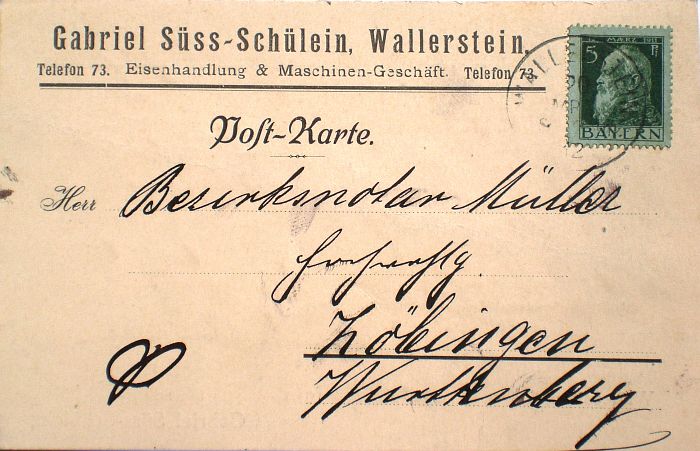 Gabriel Süss-Schülein, Wallerstein.
Telefon 73. Eisenhandlung & Maschinen-Geschäft. Telefon 73.
14. MÄRZ 1911
5 Pf
BAYERN
WALLERSTEIN
20
MRZ
12
Post-Karte.
Herr Bezirksnotar Müller
Zöbingen
Württemberg